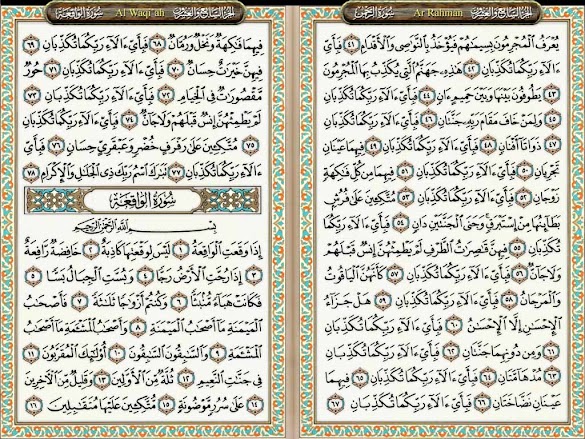 الجزء السابع والعشرون Ar Rahman سورة الرحمن
يُعْرَفُ الْمُجْرِمُونَ بِسِيمَٰهُمْ فَيُؤْخَذُ بِالنَّوَٰصِي وَالْأَقْدَامِ ٤١ فَبِأَيِّ
ءَالَآءِ رَبِّكُمَا تُكَذِّبَانِ ٤٢ هَٰذِهِۦ جَهَنَّمُ الَّتِي يُكَذِّبُ بِهَا الْمُجْرِمُونَ
٤٣ يَطُوفُونَ بَيْنَهَا وَبَيْنَ حَمِيمٍ ءَانٍ ٤٤ فَبِأَيِّ ءَالَآءِ رَبِّكُمَا تُكَذِّبَانِ
٤٥ وَلِمَنْ خَافَ مَقَامَ رَبِّهِۦ جَنَّتَانِ ٤٦ فَبِأَيِّ ءَالَآءِ رَبِّكُمَا تُكَذِّبَانِ
٤٧ ذَوَاتَآ أَفْنَانٍ ٤٨ فَبِأَيِّ ءَالَآءِ رَبِّكُمَا تُكَذِّبَانِ ٤٩ فِيهِمَا عَيْنَانِ
تَجْرِيَانِ ٥٠ فَبِأَيِّ ءَالَآءِ رَبِّكُمَا تُكَذِّبَانِ ٥١ فِيهِمَا مِن كُلِّ فَٰكِهَةٍ
زَوْجَانِ ٥٢ فَبِأَيِّ ءَالَآءِ رَبِّكُمَا تُكَذِّبَانِ ٥٣ مُتَّكِـِٔينَ عَلَىٰ فُرُشٍ
بَطَآئِنُهَا مِنْ إِسْتَبْرَقٍ وَجَنَى الْجَنَّتَيْنِ دَانٍ ٥٤ فَبِأَيِّ ءَالَآءِ رَبِّكُمَا
تُكَذِّبَانِ ٥٥ فِيهِنَّ قَٰصِرَٰتُ الطَّرْفِ لَمْ يَطْمِثْهُنَّ إِنسٌ قَبْلَهُمْ
وَلَا جَآنٌّ ٥٦ فَبِأَيِّ ءَالَآءِ رَبِّكُمَا تُكَذِّبَانِ ٥٧ كَأَنَّهُنَّ الْيَاقُوتُ
وَالْمَرْجَانُ ٥٨ فَبِأَيِّ ءَالَآءِ رَبِّكُمَا تُكَذِّبَانِ ٥٩ هَلْ جَزَآءُ
الْإِحْسَٰنِ إِلَّا الْإِحْسَٰنُ ٦٠ فَبِأَيِّ ءَالَآءِ رَبِّكُمَا تُكَذِّبَانِ
٦١ وَمِن دُونِهِمَا جَنَّتَانِ ٦٢ فَبِأَيِّ ءَالَآءِ رَبِّكُمَا تُكَذِّبَانِ
٦٣ مُدْهَآمَّتَانِ ٦٤ فَبِأَيِّ ءَالَآءِ رَبِّكُمَا تُكَذِّبَانِ ٦٥ فِيهِمَا
عَيْنَانِ نَضَّاخَتَانِ ٦٦ فَبِأَيِّ ءَالَآءِ رَبِّكُمَا تُكَذِّبَانِ ٦٧
الجزء السابع والعشرون Al Waqi'ah سورة الواقعة
فِيهِمَا فَٰكِهَةٌ وَنَخْلٌ وَرُمَّانٌ ٦٨ فَبِأَيِّ ءَالَآءِ رَبِّكُمَا تُكَذِّبَانِ ٦٩
فِيهِنَّ خَيْرَٰتٌ حِسَانٌ ٧٠ فَبِأَيِّ ءَالَآءِ رَبِّكُمَا تُكَذِّبَانِ ٧١ حُورٌ
مَّقْصُورَٰتٌ فِي الْخِيَامِ ٧٢ فَبِأَيِّ ءَالَآءِ رَبِّكُمَا تُكَذِّبَانِ ٧٣
لَمْ يَطْمِثْهُنَّ إِنسٌ قَبْلَهُمْ وَلَا جَآنٌّ ٧٤ فَبِأَيِّ ءَالَآءِ رَبِّكُمَا تُكَذِّبَانِ
٧٥ مُتَّكِـِٔينَ عَلَىٰ رَفْرَفٍ خُضْرٍ وَعَبْقَرِيٍّ حِسَانٍ ٧٦ فَبِأَيِّ
ءَالَآءِ رَبِّكُمَا تُكَذِّبَانِ ٧٧ تَبَٰرَكَ اسْمُ رَبِّكَ ذِي الْجَلَٰلِ وَالْإِكْرَامِ ٧٨
سورة الواقعة
بِسْمِ اللَّهِ الرَّحْمَٰنِ الرَّحِيمِ
إِذَا وَقَعَتِ الْوَاقِعَةُ ١ لَيْسَ لِوَقْعَتِهَا كَاذِبَةٌ ٢ خَافِضَةٌ رَّافِعَةٌ
٣ إِذَا رُجَّتِ الْأَرْضُ رَجًّا ٤ وَبُسَّتِ الْجِبَالُ بَسًّا ٥
فَكَانَتْ هَبَآءً مُّنبَثًّا ٦ وَكُنتُمْ أَزْوَٰجًا ثَلَٰثَةً ٧ فَأَصْحَٰبُ
الْمَيْمَنَةِ مَآ أَصْحَٰبُ الْمَيْمَنَةِ ٨ وَأَصْحَٰبُ الْمَشْـَٔمَةِ مَآ أَصْحَٰبُ
الْمَشْـَٔمَةِ ٩ وَالسَّٰبِقُونَ السَّٰبِقُونَ ١٠ أُو۟لَٰٓئِكَ الْمُقَرَّبُونَ ١١
فِي جَنَّٰتِ النَّعِيمِ ١٢ ثُلَّةٌ مِّنَ الْأَوَّلِينَ ١٣ وَقَلِيلٌ مِّنَ الْءَاخِرِينَ
١٤ عَلَىٰ سُرُرٍ مَّوْضُونَةٍ ١٥ مُّتَّكِـِٔينَ عَلَيْهَا مُتَقَٰبِلِينَ ١٦